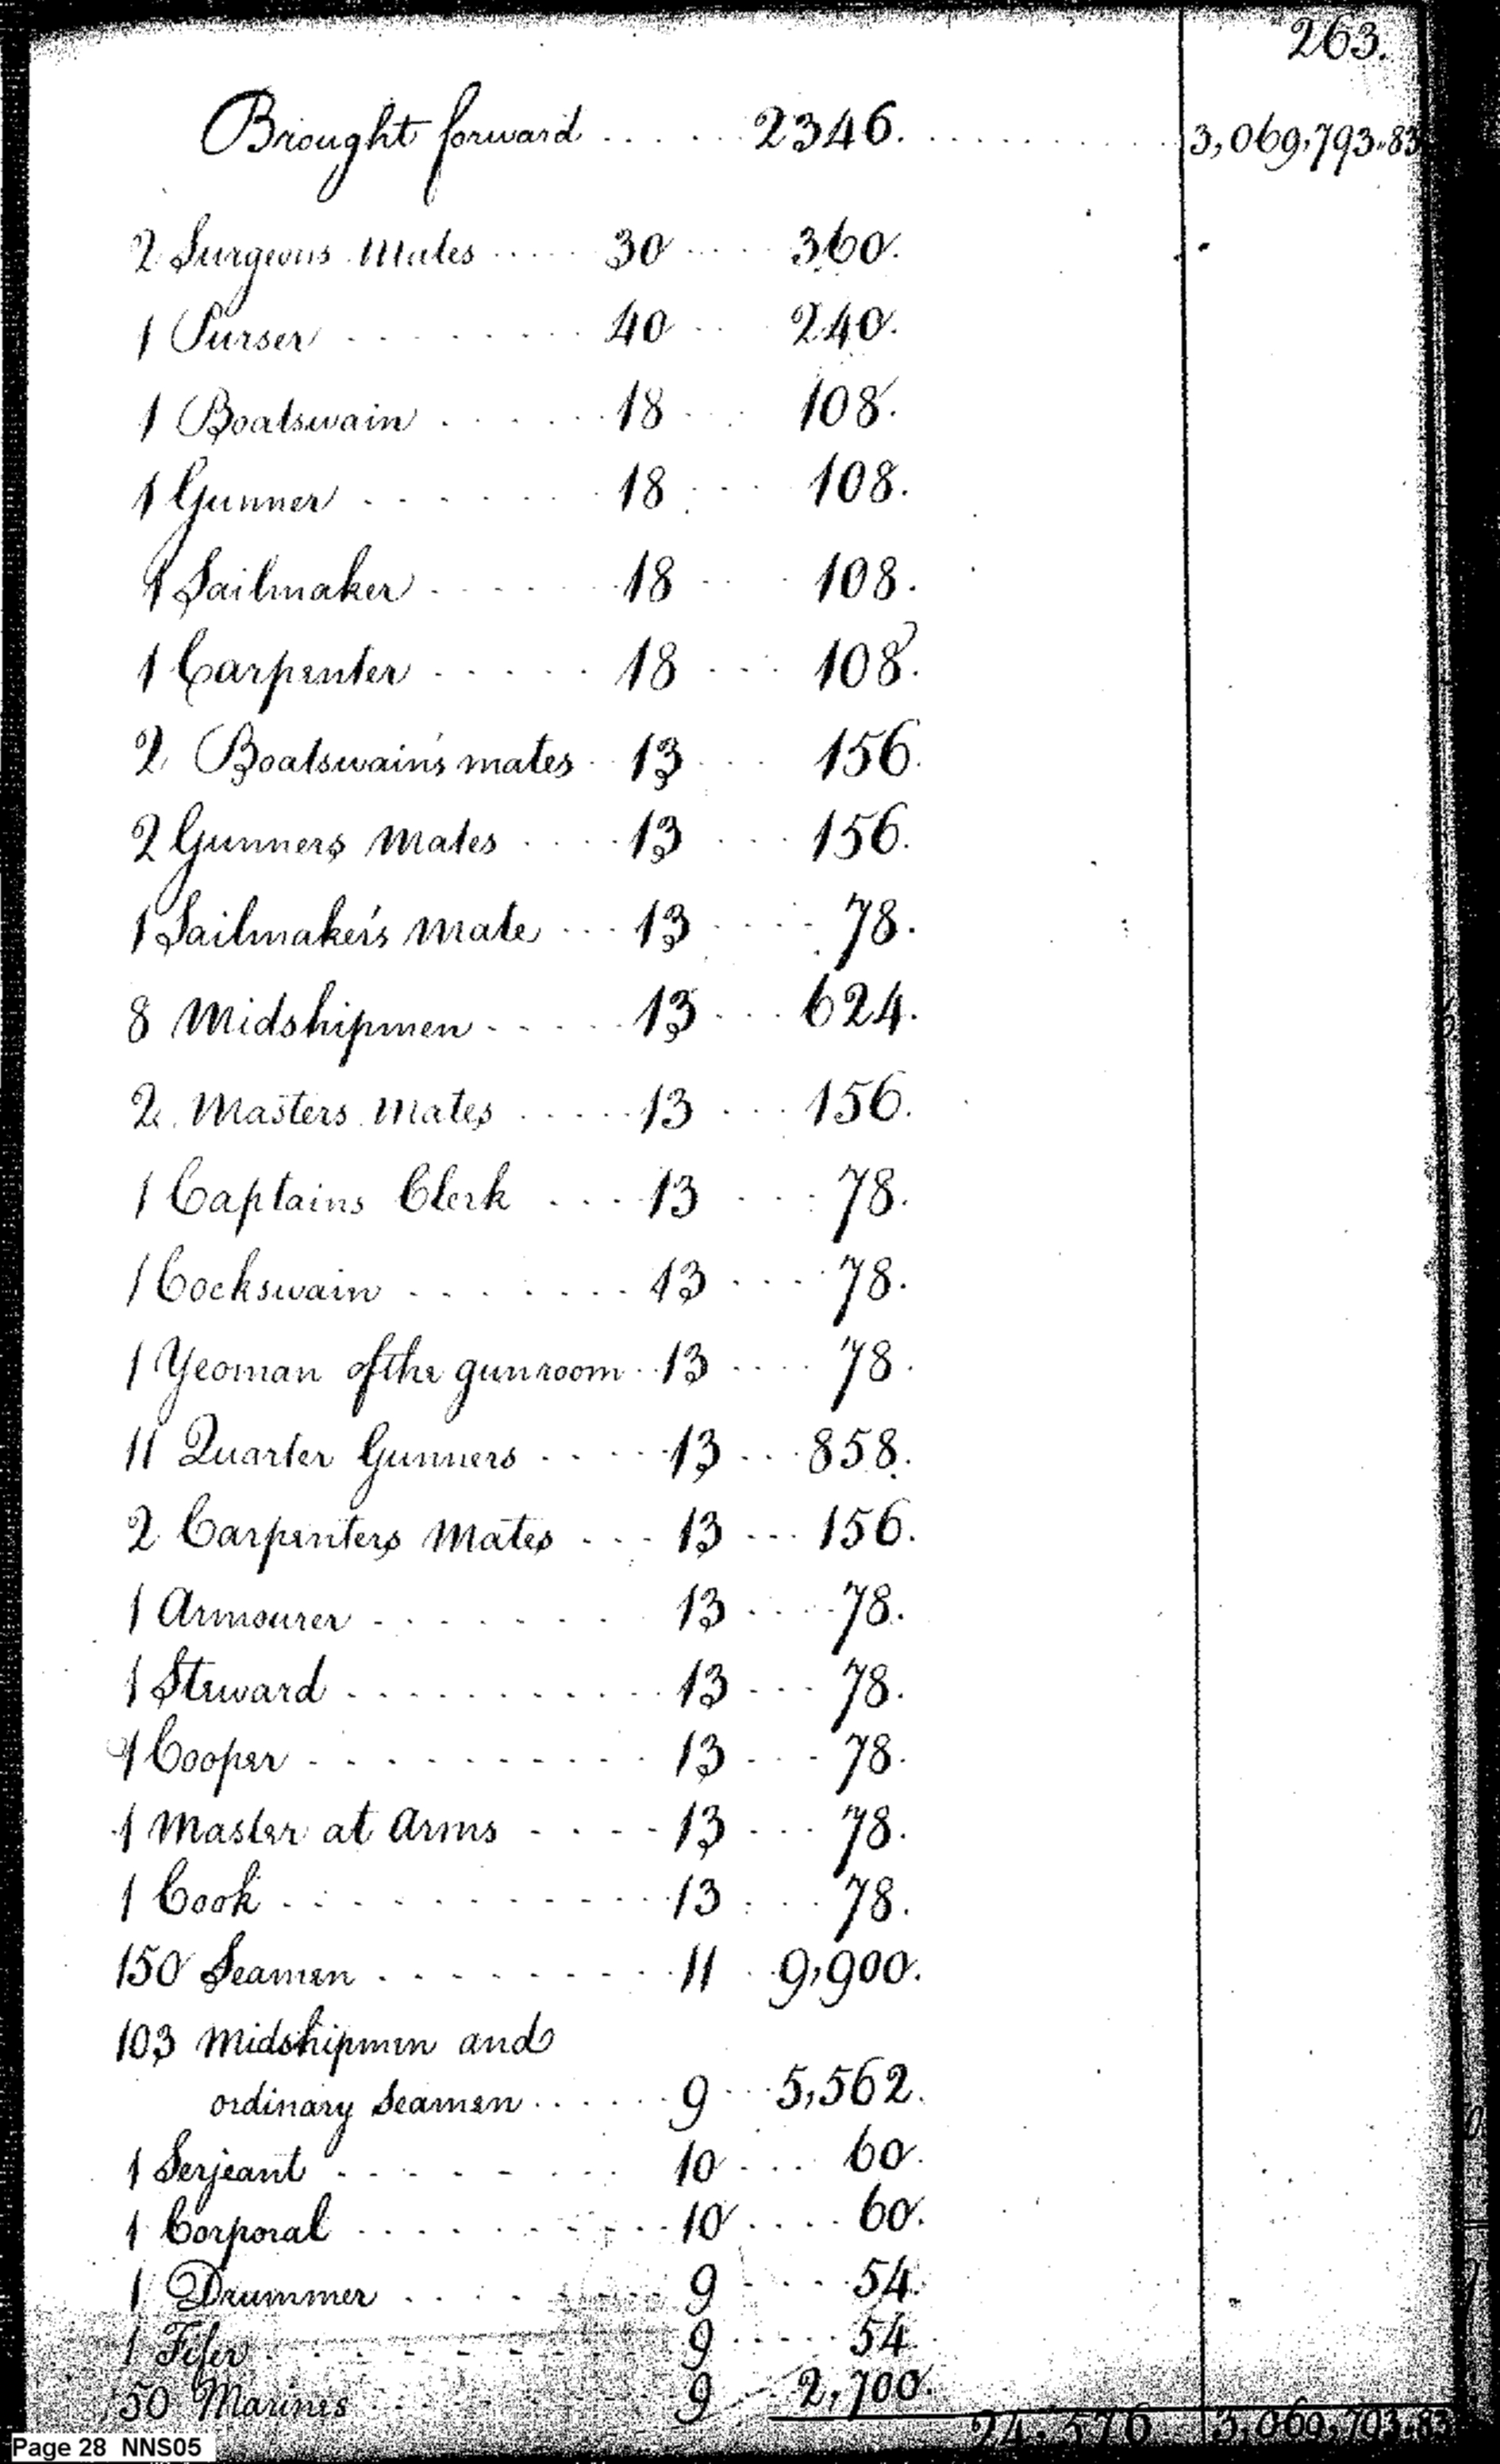 263.
Brought forward ..... 2346. .......... 3,069,793.83
2 Surgeons Mates ..... 30 .... 360.
1 Purser ........ 40 ... 240.
1 Boatswain ...... 18 ... 108.
1 Gunner ....... 18 ... 108.
1 Sailmaker ...... 18 ... 108.
1 Carpenter ..... 18 ... 108.
2 Boatswain's mates .. 13 .... 156.
2 Gunners Mates .... 13 .... 156.
1 Sailmaker's Mate ... 13 .... 78.
8 Midshipmen ..... 13 ... 624.
2 Masters Mates ..... 13 ... 156.
1 Captains Clerk ... 13 ... 78.
1 Cockswain ....... 13 .... 78.
1 Yeoman of the gunroom .. 13 .... 78.
11 Quarter Gunners .... 13 ... 858.
2 Carpenters Mates ... 13 ... 156.
1 Armourer ....... 13 .... 78.
1 Steward .......... 13 ... 78.
1 Cooper .......... 13 ... 78.
1 Master at Arms .... 13 ... 78.
1 Cook .......... 13 .... 78.
150 Seamen ......... 11 .. 9,900.
103 Midshipmen and
ordinary Seamen ...... 9 ... 5,562.
1 Serjeant ........ 10 .... 60.
1 Corporal .......... 10 .... 60.
1 Drummer ........ 9 .... 54.
1 Fifer ......... 9 ..... 54.
50 Marines ........ 9 ... 2,700.
24,576. 3,069,793.83
Page 28 NNS05